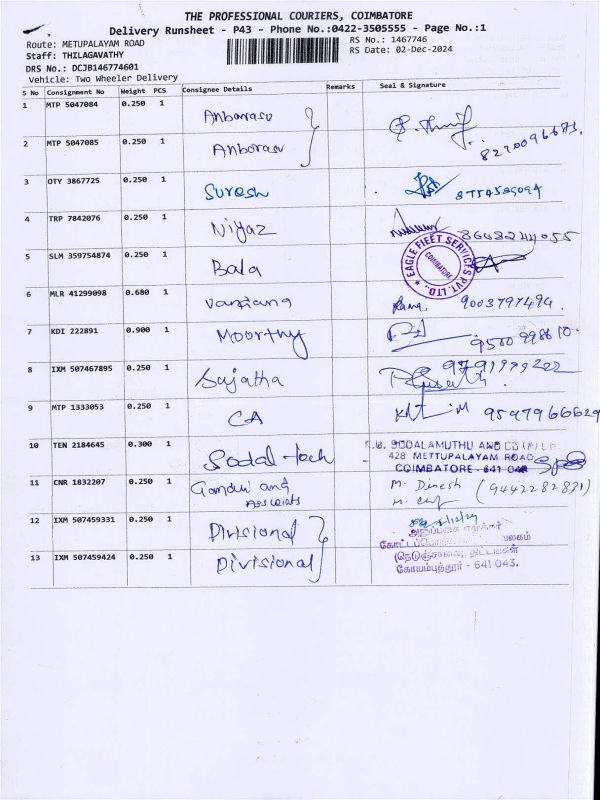 THE PROFESSIONAL COURIERS, COIMBATORE
Delivery Runsheet - P43 - Phone No.:0422-3505555 - Page No.:1
Route: METUPALAYAM ROAD RS No.: 1467746
Staff: THILAGAVATHY RS Date: 02-Dec-2024
DRS No.: DCJB146774601
Vehicle: Two Wheeler Delivery
S No Consignment No Weight PCS Consignee Details Remarks Seal & Signature
1 MTP 5047084 0.250 1 Anbarasu
2 MTP 5047085 0.250 1 Anbarasu 8220096673.
3 OTY 3867725 0.250 1 Suresh
4 TRP 7842076 0.250 1 Niyaz 8608244055
5 SLM 359754874 0.250 1 Bala EAGLE FLEET SERVICES PVT. LTD., COIMBATORE
6 MLR 41299098 0.680 1 9003797494.
7 KDI 222891 0.900 1 Moorthy
8 IXM 507467895 0.250 1 Sujatha
9 MTP 1333053 0.250 1 CA
10 TEN 2184645 0.300 1 Sodal-tech SODALAMUTHU AND CO
428 METTUPALAYAM ROAD
COIMBATORE - 641
11 CNR 1832207 0.250 1 Gandhi and M. Dinesh (9442282831)
Associats
12 IXM 507459331 0.250 1 Divisional
13 IXM 507459424 0.250 1 Divisional
(நெடுஞ்சாலை)
கோயம்புத்தூர் - 641 043.